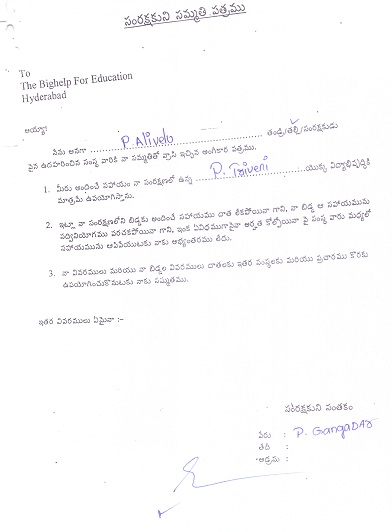 సంరక్షకుని సమ్మతి పత్రము
To
The Bighelp For Education
Hyderabad
అయ్యా!
నేను అనగా P. Alivelu తండ్రి/తల్లి/సంరక్షకుడు
పైన ఉదహరించిన సంస్థ వారికి నా సమ్మతితో వ్రాసి ఇచ్చిన అంగీకార పత్రము.
1. మీరు అందించే సహాయం నా సంరక్షణలో ఉన్న P. Triveni యొక్క విద్యాభివృద్ధికి
మాత్రమే ఉపయోగిస్తాను.
2. ఇట్లా నా సంరక్షణలోని బిడ్డకు అందించే సహాయము దాత లేకపోయినా గాని, నా బిడ్డ ఆ సహాయమును
సద్వినియోగము పరచకపోయినా గాని, ఇంక ఏవిధముగానైనా అర్హత కోల్పోయినా పై సంస్థ వారు మధ్యలో
సహాయమును ఆపివేయుటకు నాకు అభ్యంతరము లేదు.
3. నా వివరములు మరియు నా బిడ్డల వివరములు దాతలకు ఇతర సంస్థలకు మరియు ప్రచారము కొరకు
ఉపయోగించుకొనుటకు నాకు సమ్మతము.
ఇతర వివరములు ఏమైనా :-
సంరక్షకుని సంతకం
పేరు : P. GangaDAR
తేదీ :
అడ్రసు :